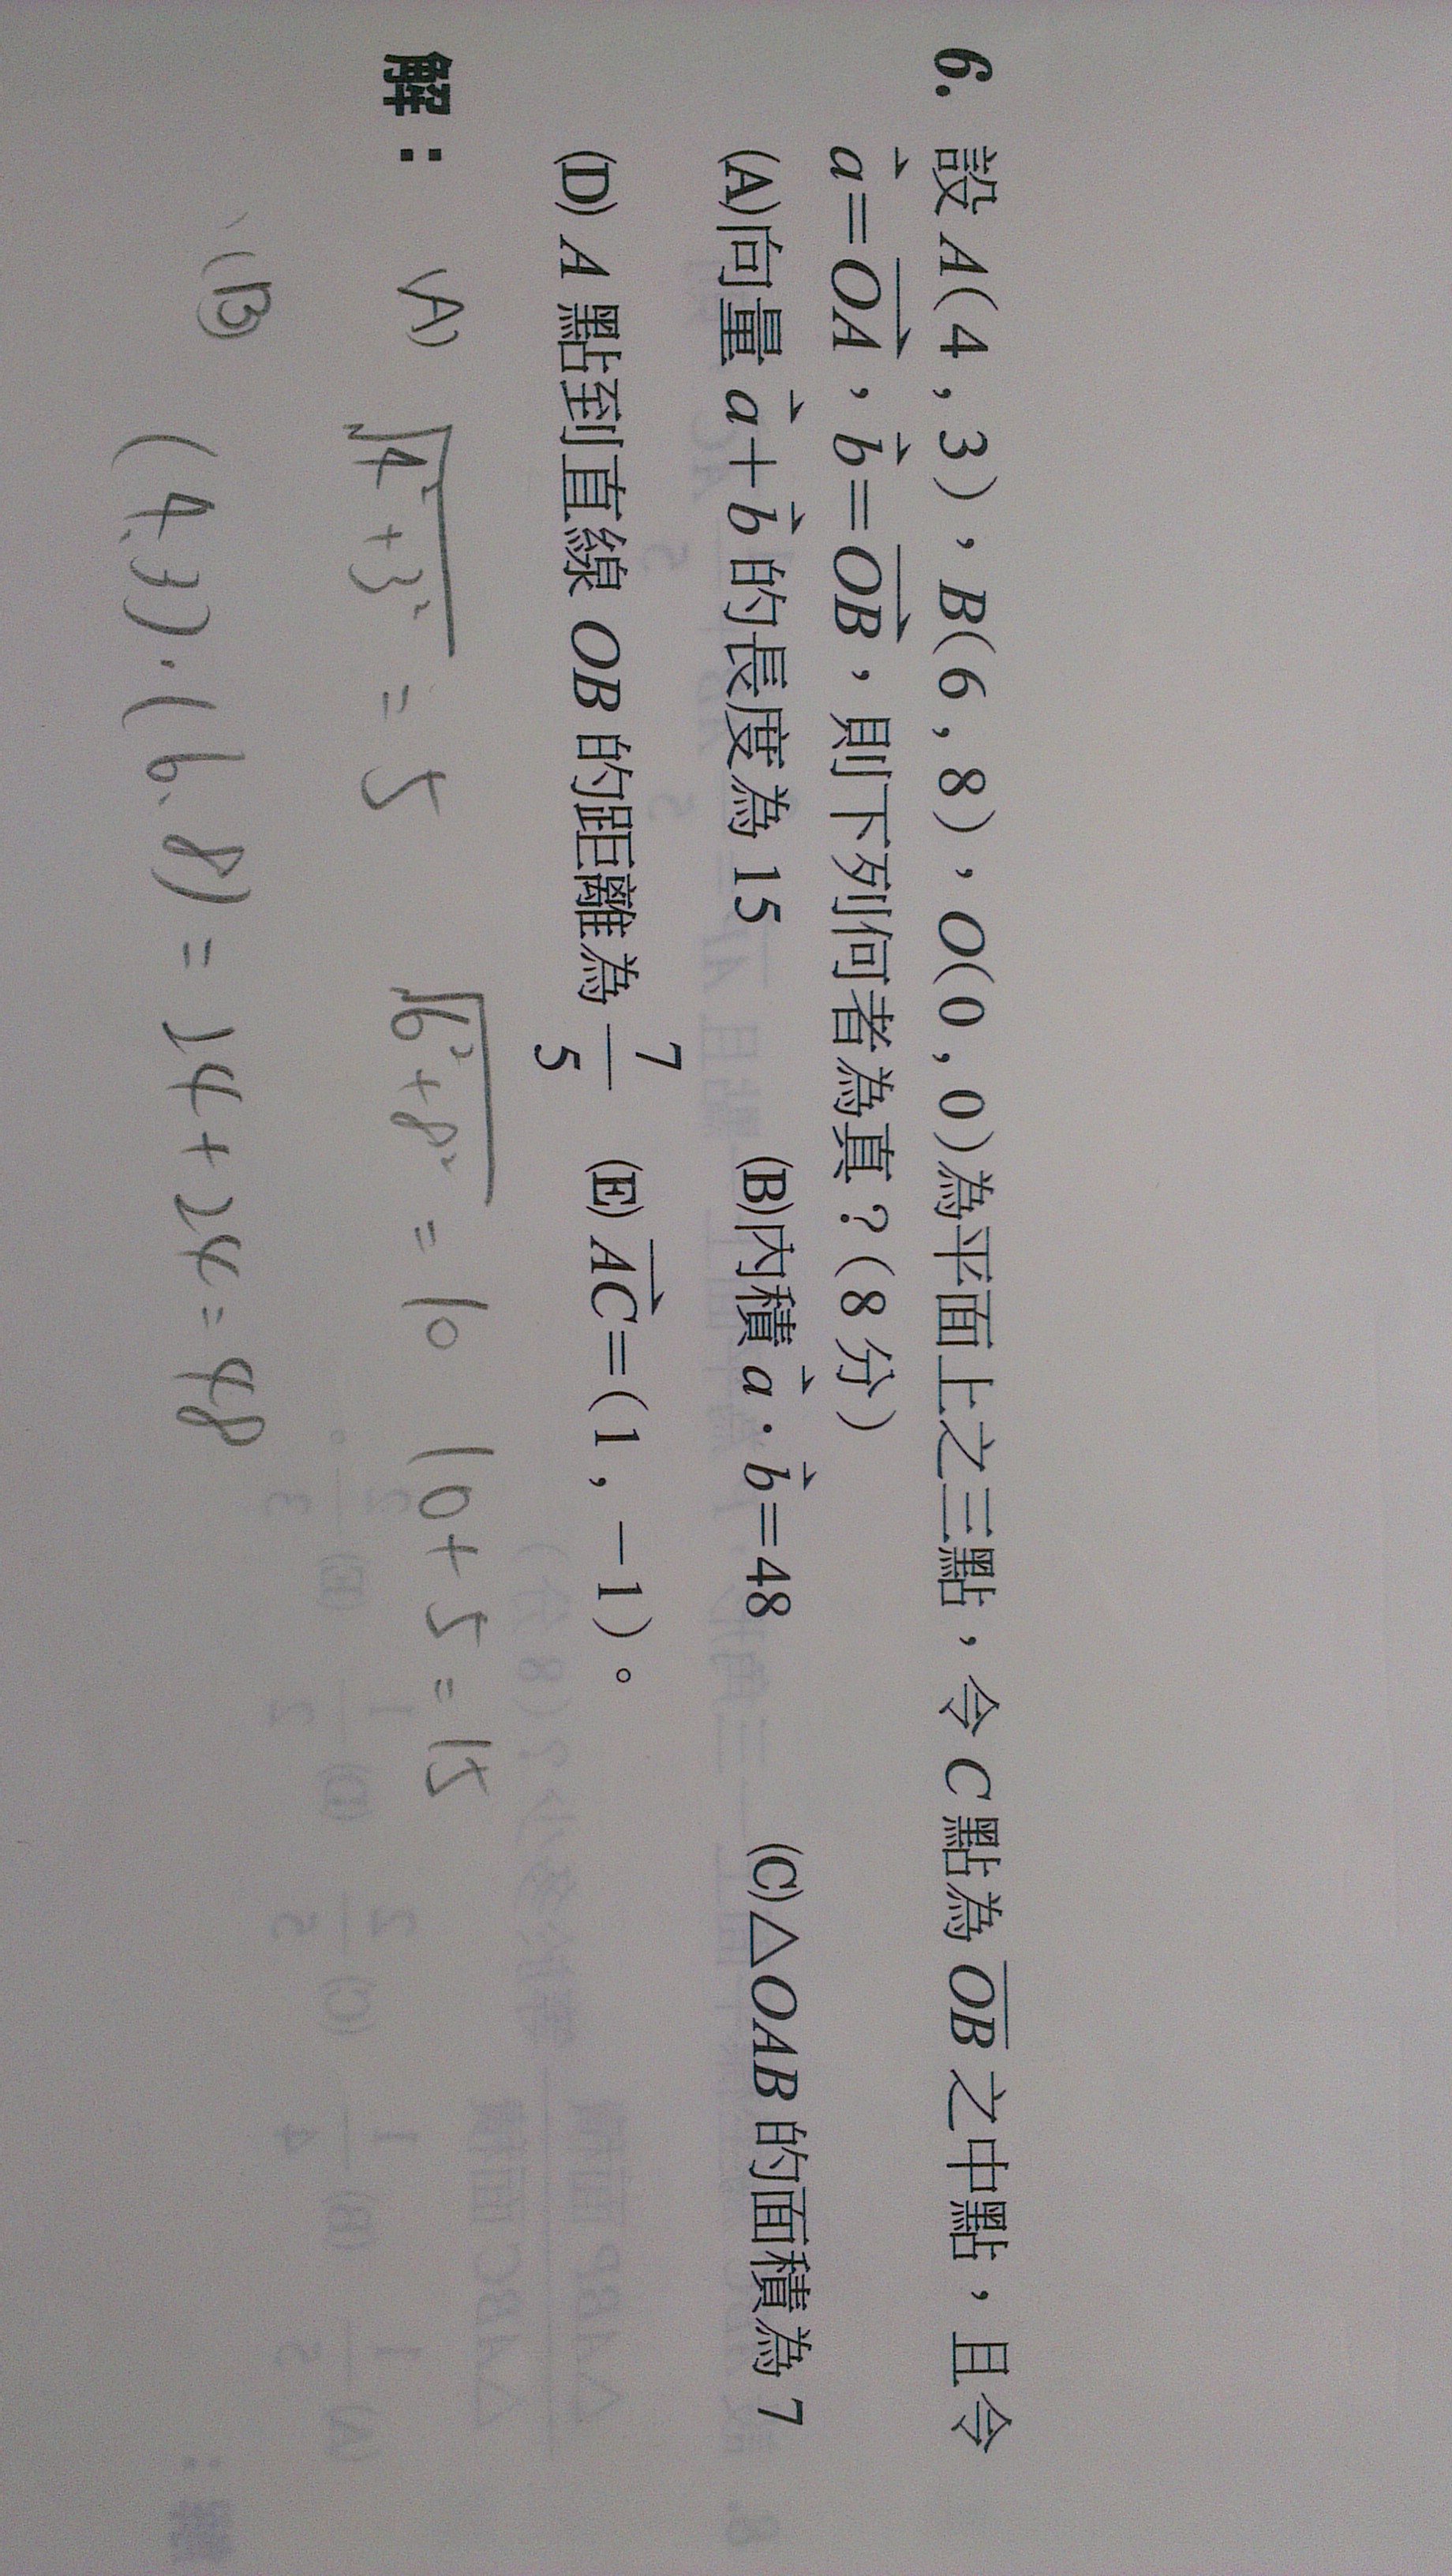 6. 設 A(4,3),B(6,8),O(0,0)為平面上之三點,令 C 點為 OB 之中點,且令
a=OA,b=OB,則下列何者為真?(8分)
(A)向量 a+b 的長度為 15 (B)內積 a·b=48 (C)△OAB 的面積為 7
(D) A 點到直線 OB 的距離為 7/5 (E) AC=(1,-1)。
解: (A) √4²+3² = 5 √6²+8² = 10 10+5=15
(B) (4,3)·(6,8)=24+24=48